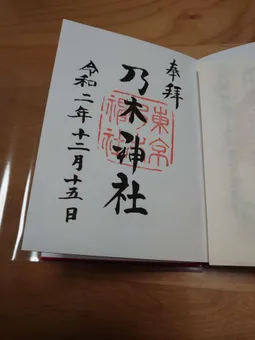 奉拝
乃木神社
令和二年十二月十五日
東京
神社